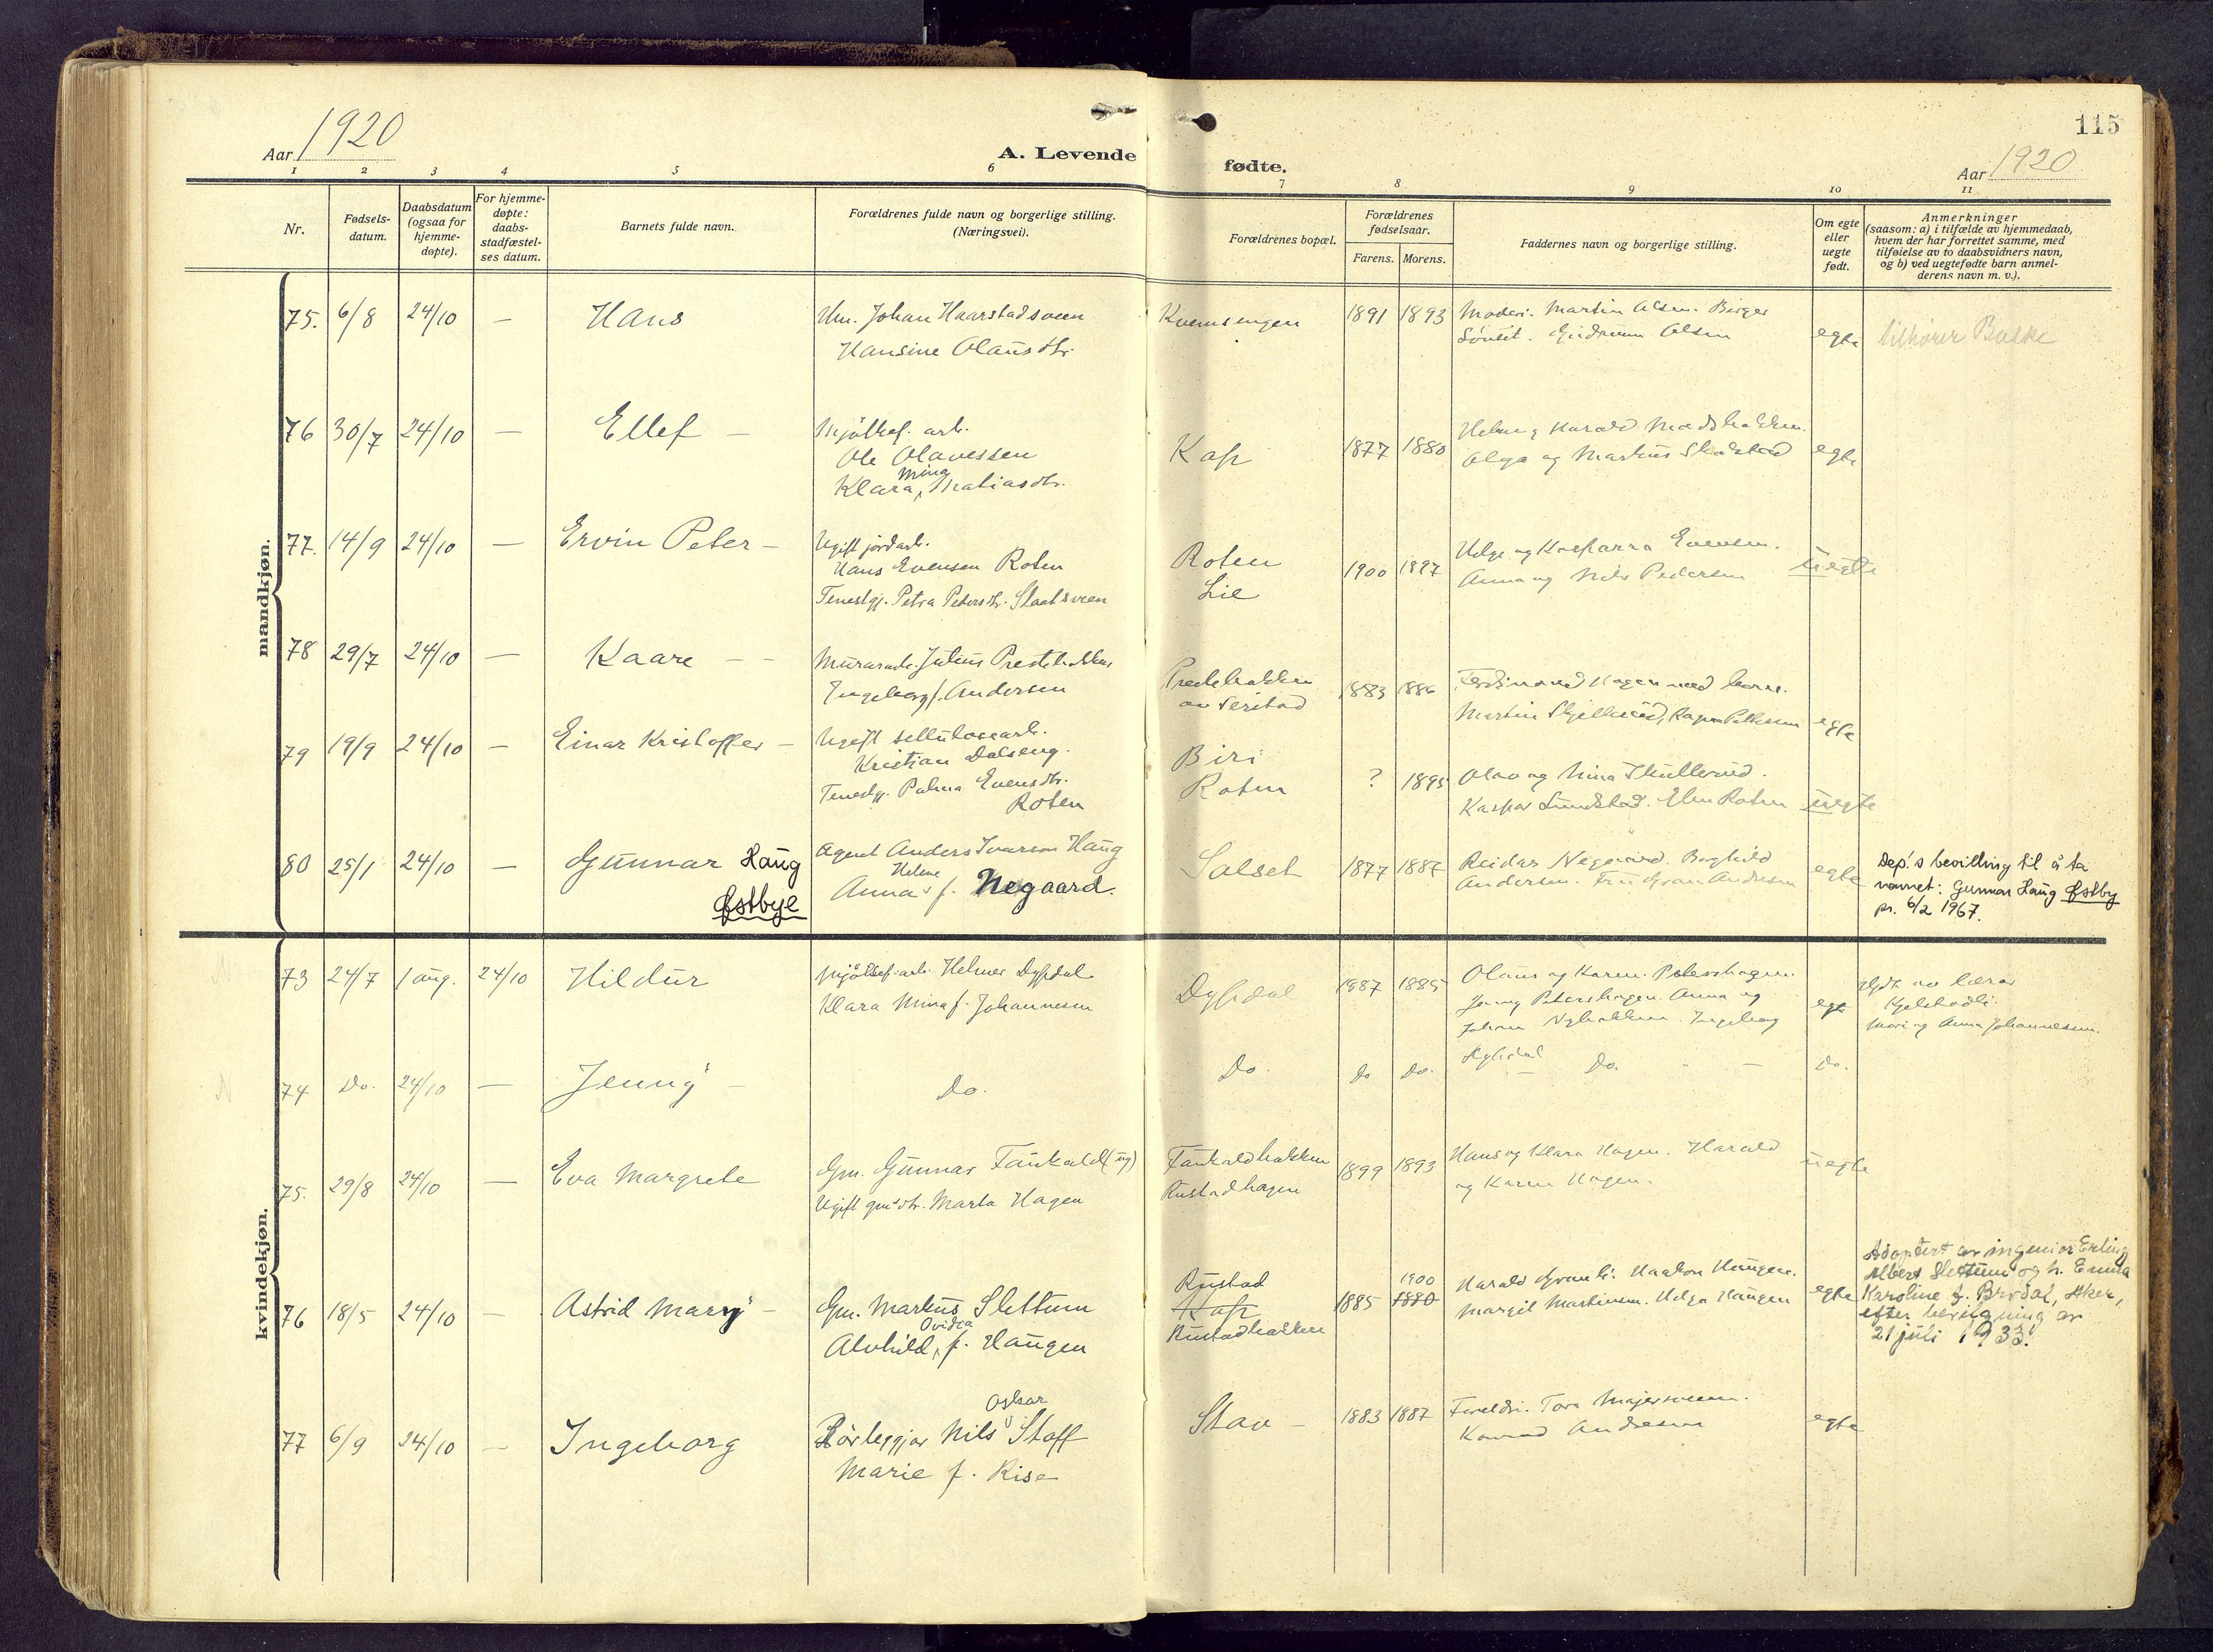 Aar 1920
A. Levende
fødte.
115
Aar 1920
1 2 3 4 5 6 7 8 9 10 11
Nr.
Fødsels-
datum.
Daabsdatum
(ogsaa for
hjemme-
døpte).
For hjemme-
døpte:
daabs-
stadfæstel-
ses datum.
Barnets fulde navn.
Forældrenes fulde navn og borgerlige stilling.
(Næringsvei).
Forældrenes bopæl.
Forældrenes
fødselsaar.
Farens. Morens.
Faddernes navn og borgerlige stilling.
Om egte
eller
uegte
født.
Anmerkninger
(saasom: a) i tilfælde av hjemmedaab,
hvem der har forrettet samme, med
tilføielse av to daabsvidners navn,
og b) ved uegtefødte barn anmel-
derens navn m. v.).
mandkjøn.
75. 6/8 24/10 — Hans
Johan Haarstadsveen
Hansine Olausdtr.
Kvemsengen
1891 1893
Moderi. Martin Olsen. Birger
Gudrun Olsen
egte
tilhører Baske
76 30/7 24/10 — Ellef —
Mjölkef. arb.
Ole Olavessen
Mina
Klara, Matiasdtr.
Kap
1877 1880
Helene og Harald Madsbakken.
Olga og Markus Skolstad
egte
77. 14/9 24/10 — Ervin Peter —
Ugift jordarb.
Hans Evensen Roten
Tenestgj. Petra Petersdtr. Staatsveen
Roten
Lie
1900 1897
Helge og Kasparra Evensen.
Anna og Nils Pedersen
uegte
78 29/7 24/10 — Kaare — —
Murararb. Julius Prestebakken
Ingeborg f. Andersen
Prestebakken
av Seristad
1883 1886
Ferdinand Hagen med kone.
Martin Skjellerud, Ragna Pettersen
egte
79 19/9 24/10 — Einar Kristoffer —
Ugift sellulosearb.
Kristian Dalseng.
Tenestgj. Palma Evensdtr.
Roten
Biri
Roten
? 1895
Olav og Nina Skullerud.
Kaspar Sundstad. Elen Roten
uegte
80 25/1 24/10 — Gunnar Haug
Østbye
Agent Anders Ivarson Haug
Helene
Anna f. Negaard.
Salset
1877 1887
Reidar Negaard. Borghild
Andersen. Fru Gran Andersen
egte
Dep.'s bevilling til å ta
navnet: Gunnar Haug Østby
pr. 6/2 1967.
kvindekjøn.
73 24/7 1 aug. 24/10 Hildur
Mjölkef. arb. Helmer Dypdal
Klara Mina f. Johannesen
Dypdal
1887 1885
Olaus og Karen Petershagen.
Jenny Petershagen. Anna og
Johan Nybakken. Ingeborg
Dypdal
egte
Hjdt. av lærar
Kjelstadli.
Mari og Anna Johannessen.
74 Do. 24/10 — Jenny —
Do.
Do.
Do Do.
— Do. — —
Do.
75. 29/8 24/10 — Eva Margrete
Gm. Gunnar Faukald (ug)
Ugift gm'dtr. Marta Hagen
Faukaldbakken
Rustadhagen
1899 1893
Hans og Klara Hagen. Harald
og Karen Hagen.
uegte
76 18/5 24/10 — Astrid Mary —
Gm. Markus Slettum
Ovidia
Alvhild, f. Haugen
Rustad
Kap
Rustadbakken
1885
1900
1880
Harald Granli. Haakon Haugen.
Margit Martinsen. Helga Haugen
egte
Adoptert av ingeniør Erling
Albert Slettum og h. Emma
Karoline f. Brodal, Aker,
efter bevilgning av
21 juli 1933.
77 6/9 24/10 — Ingeborg
Oskar
Rörleggjar Nils Staff
Marie f. Rise
Stav —
1883 1887
Foreldri. Tora Majersveen.
Konrad Andresen
egte